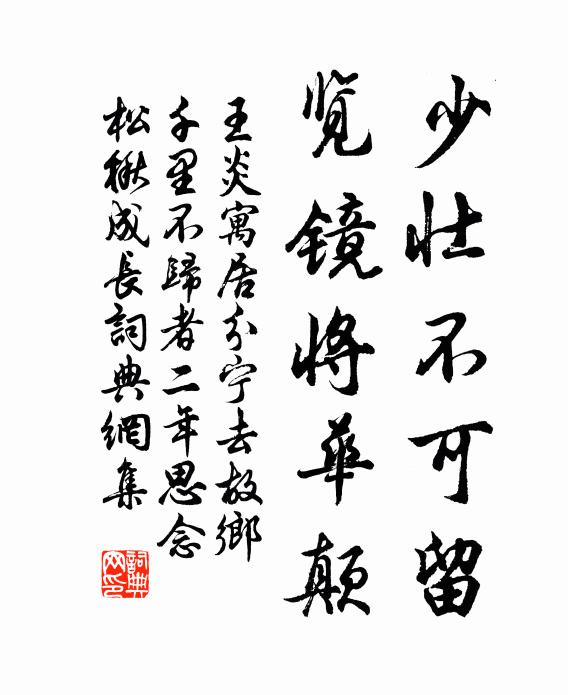 少壮不可留
览镜将華颠
王炎寓居分宁去故鄉
千里不歸者二年思念
松楸成長詞典網集
詞典
网印